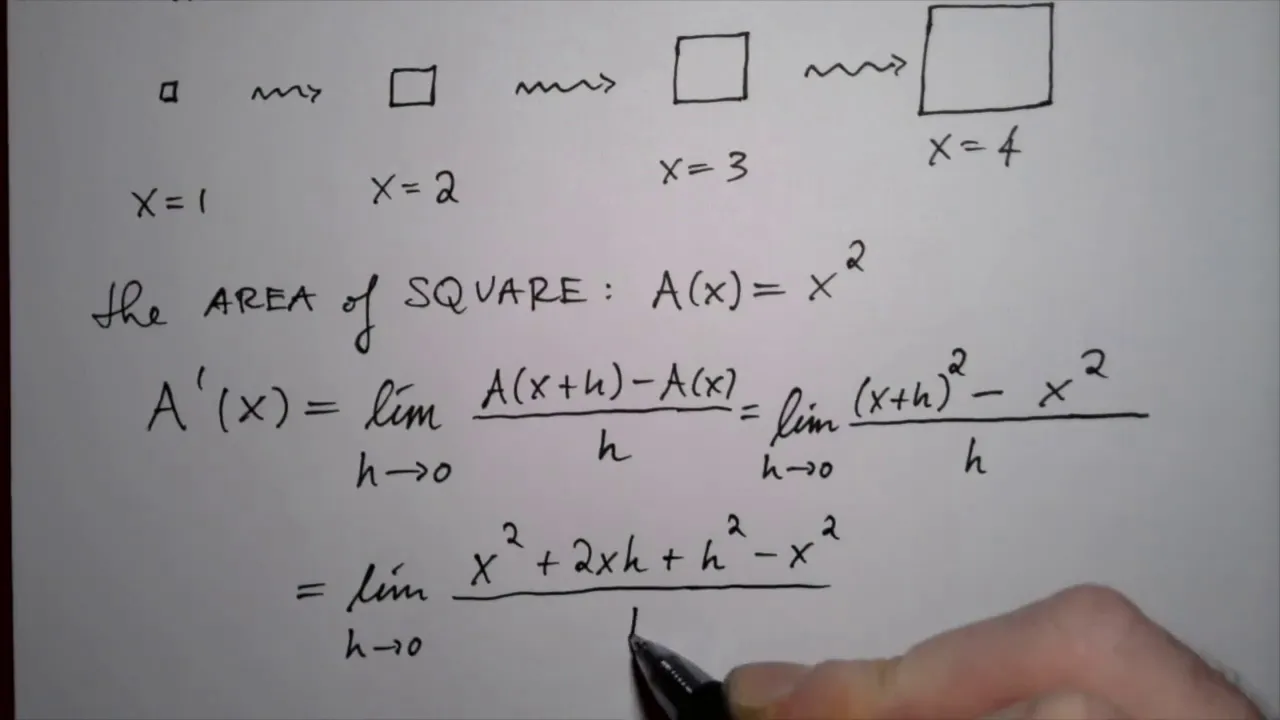 x = 1 x = 2 x = 3 x = 4
the AREA of SQUARE: A(x) = x²
A'(x) = lim h→0 A(x+h) – A(x) / h = lim h→0 (x+h)² – x² / h
= lim h→0 x² + 2xh + h² – x² /